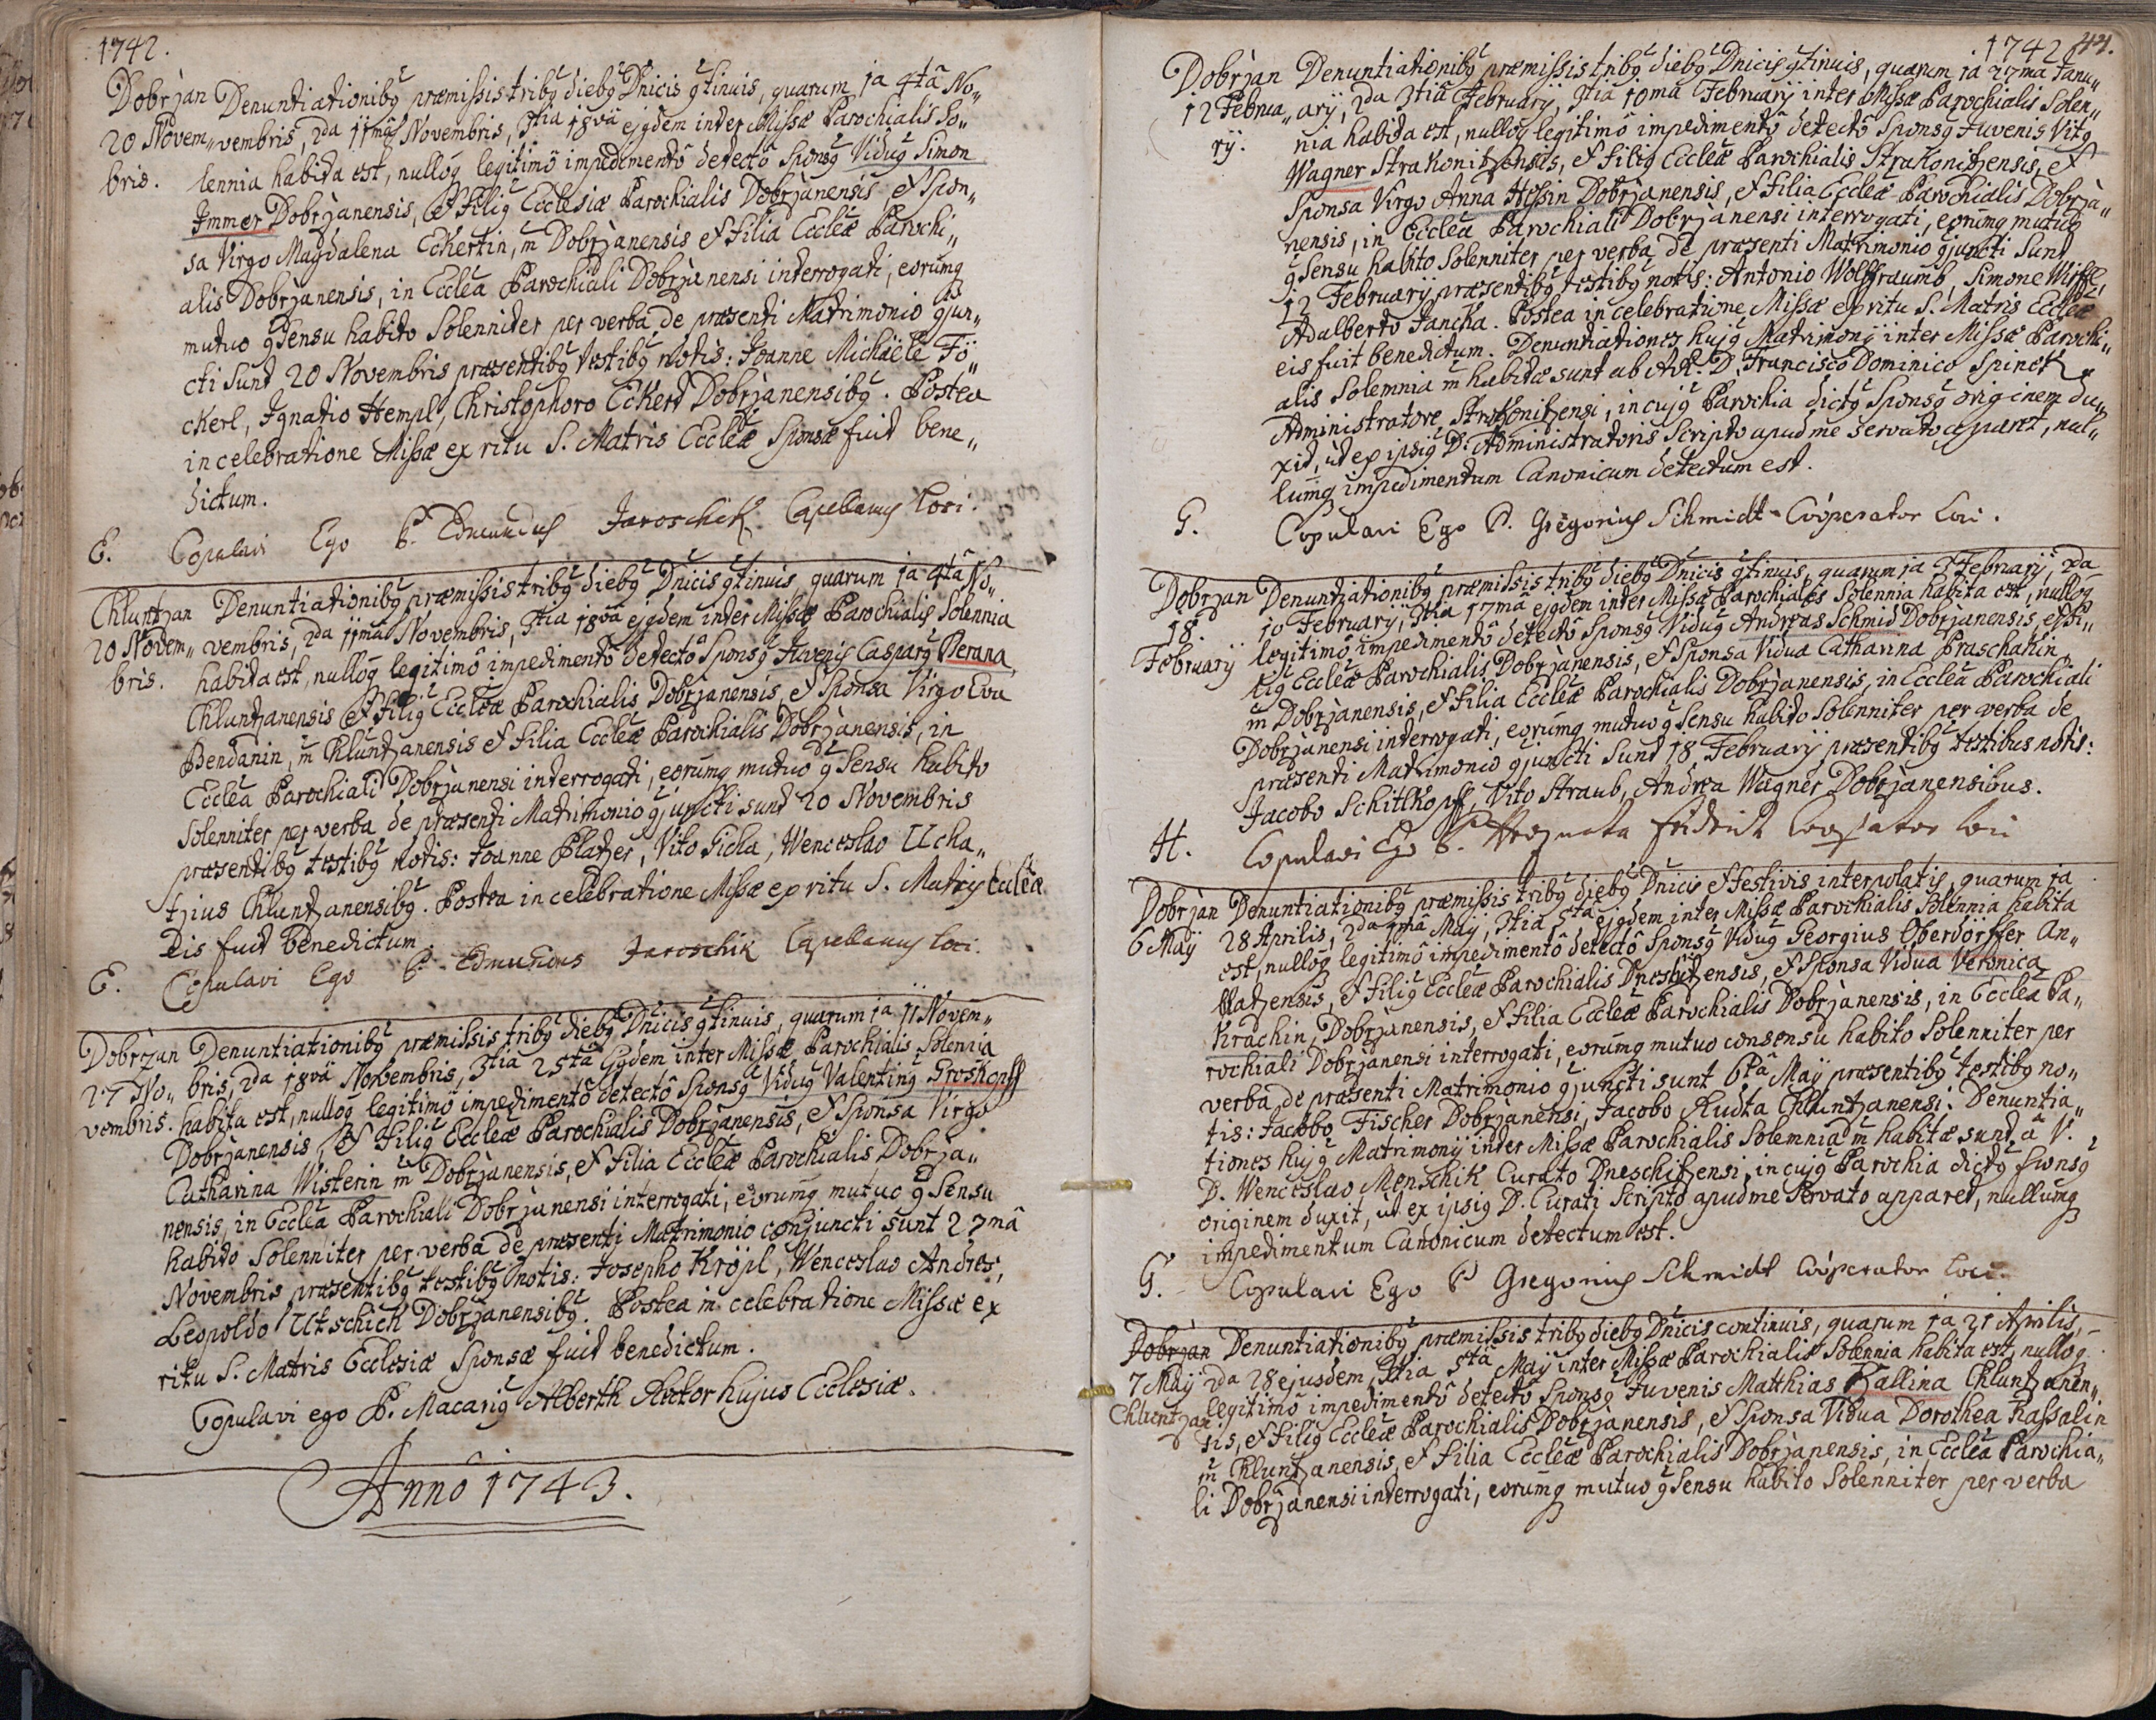 1742.
Dobrzan Denuntiationibꝰ præmissis tribꝰ diebꝰ Dnicis ꝯtinuis, quarum 1a 4tâ No„
20 Novem„ vembris, 2da 11mâ Novembris, 3tia 18vâ ejꝰdem inter Missæ Parochialis So„
bris. lennia habita est, nulloꝗ legitimô impedimentô detectô Sponsꝰ Viduꝰ Simon
Immer Dobrzanensis, et Filiꝰ Ecclesiæ Parochialis Dobrzanensis et Spon„
sa Virgo Magdalena Eckertin, m̃ Dobrzanensis et Filia Eccleæ Parochi„
alis Dobrzanensis, in Ecclea Parochiali Dobrzanensi interrogati, eorumꝗ
mutuo ꝯSensu habito Solenniter per verba de præsenti Matrimonio ꝯjun„
cti Sunt 20 Novembris præsentibꝰ testibꝰ notis: Joanne Michäele Fö„
ckerl, Ignatio Hempl, Christophoro Eckert Dobrzanensibꝰ. Postea
in celebratione Missæ ex ritu S. Matris Eccleæ Sponsæ fuit bene„
dictum.
E. Copulavi Ego P. Edmundus Jaroschik Capellanus loci.
Chluntzan Denuntiationibꝰ præmissis tribꝰ diebꝰ Dnicis ꝯtinuis, quarum 1a 4tâ No„
20 Novem„ vembris, 2da 11mâ Novembris, 3tia 18vâ ejꝰdem inter Missæ Parochialis Solennia
bris. habita est, nulloꝗ legitimô impedimentô detectô Sponsꝰ Juvenis Casparꝰ Perana
Chluntzanensis et Filiꝰ Eccleæ Parochialis Dobrzanensis, et Sponsa Virgo Eva
Bendanin, m̃ Chluntzanensis et Filia Eccleæ Parochialis Dobrzanensis, in
Ecclea Parochiali Dobrzanensi interrogati, eorumꝗ mutuo ꝯSensu habito
Solenniter per verba de præsenti Matrimonio ꝯjuncti sunt 20 Novembris
præsentibꝰ testibꝰ notis: Joanne Platzer, Vito Ficha, Wenceslao Ucha„
tzius Chluntzanensibꝰ. Postea in celebratione Missæ ex ritu S. Matris Eccleæ
Eis fuit benedictum.
E. Copulavi Ego P. Edmundus Jaroschik Capellanus loci.
Dobrzan Denuntiationibꝰ præmissis tribꝰ diebꝰ Dnicis ꝯtinuis, quarum 1a 11 Novem„
27 No„ bris, 2da 18vâ Novembris, 3tia 25tâ Ejꝰdem inter Missæ Parochialis Solennia
vembris. habita est, nulloꝗ legitimô impedimentô detectô Sponsꝰ Viduꝰ Valentinꝰ Groskopff
Dobrzanensis, et Filiꝰ Eccleæ Parochialis Dobrzanensis, et Sponsa Virgo
Catharina Wisterin m̃ Dobrzanensis, et Filia Eccleæ Parochialis Dobrza„
nensis, in Ecclea Parochiali Dobrzanensi interrogati, eorumꝗ mutuo ꝯSensu
habito Solenniter per verba de præsenti Matrimonio conjuncti sunt 27mâ
Novembris præsentibꝰ testibꝰ notis: Josepho Kröpl, Wenceslao Andres,
Leopoldo Utschich Dobrzanensibꝰ. Postea in celebratione Missæ ex
ritu S. Matris Ecclesiæ Sponsæ fuit benedictum.
Copulavi ego P. Macariꝰ Alberth Rector hujus Ecclesiæ.
Annô 1743.
1742 44.
Dobrzan Denuntiationibꝰ præmissis tribꝰ diebꝰ Dnicis ꝯtinuis, quarum 1a 27ma Janu„
12 Februa„ arij, 2da 3tiâ Februarij, 3tia 10mâ Februarij inter Missæ Parochialis Solen„
rij. nia habita est, nulloꝗ legitimô impedimentô detectô Sponsꝰ Juvenis Vitꝰ
Wagner Strakonitzensis, et Filiꝰ Eccleæ Parochialis Strakonitzensis, et
Sponsa Virgo Anna Hessin Dobrzanensis, et Filia Eccleæ Parochialis Dobrza„
nensis, in Ecclea Parochiali Dobrzanensi interrogati, eorumꝗ mutuo
ꝯSensu habito Solenniter per verba de præsenti Matrimonio ꝯjuncti Sunt
12 Februarij præsentibꝰ testibꝰ notis: Antonio Wolffraumb, Simone
Adalberto Jancka. Postea in celebratione Missæ ex ritu S. Matris Eccleæ
eis fuit benedictum. Denuntiationes hujꝰ Matrimonij inter Missæ Parochi„
alis Solemnia m̃ habitæ sunt ab Adl. D. Francisco Dominico Spinck
Administratore Strakonitzensi, in cujꝰ Parochia dictꝰ Sponsꝰ originem du„
xit, ut ex ipsiꝰ D: Administratoris Scripto apud me servato apparet, nul„
lumꝗ impedimentum Canonicum detectum est.
G. Copulavi Ego P. Gregorius Schmidt Coöperator loci.
Dobrzan Denuntiationibꝰ præmissis tribꝰ diebꝰ Dnicis ꝯtinuis, quarum 1a 3 Februarij, 2da
18. 10 Februarij, 3tia 17mâ ejꝰdem inter Missæ Parochiales Solennia habita est, nulloꝗ
Februarij legitimô impedimentô detectô Sponsꝰ Viduꝰ Andreas Schmid Dobrzanensis, et Fi„
liꝰ Eccleæ Parochialis Dobrzanensis, et Sponsa Vidua Catharina Praschakin
m̃ Dobrzanensis, et Filia Eccleæ Parochialis Dobrzanensis, in Ecclea Parochiali
Dobrzanensi interrogati, eorumꝗ mutuo ꝯSensu habito Solenniter per verba de
præsenti Matrimonio ꝯjuncti Sunt 18 Februarij præsentibꝰ testibus notis:
Jacobo Schitlkopff, Vito Straub, Andrea Wagner Dobrzanensibus.
H. Copulavi Ego P. Hroznata Fridrich Cooperator loci
Dobrzan Denuntiationibꝰ præmissis tribꝰ diebꝰ Dnicis et festivis interpolatis, quarum 1a
6 Maij 28 Aprilis, 2da 1mâ Maij, 3tia 5tâ ejꝰdem inter Missæ Parochialis Solennia habita
est, nulloꝗ legitimô impedimentô detectô Sponsꝰ Viduꝰ Georgius Oberdörffer An„
Katzensis, et Filiꝰ Eccleæ Parochialis Dneschitzensis, et Sponsa Vidua Veronica
Krachin, Dobrzanensis, et Filia Eccleæ Parochialis Dobrzanensis, in Ecclea Pa„
rochiali Dobrzanensi interrogati, eorumꝗ mutuo consensu habito Solenniter per
verba de præsenti Matrimonio ꝯjuncti sunt 6tâ Maij præsentibꝰ testibꝰ no„
tis: Jacobo Fischer Dobrzanensi, Jacobo Rudta Chluntzanensi: Denuntia„
tiones hujꝰ Matrimonij inter Missæ Parochialis Solemnia m̃ habitæ sunt â V.
D. Wenceslao Menschik Curato Dneschitzensi, in cujꝰ Parochia dictꝰ sponsꝰ
originem duxit, ut ex ipsiꝰ D. Curati Scripto apud me Servato apparet, nullumꝗ
impedimentum Canonicum detectum est.
G. Copulavi Ego P Gregorius Schmidt Coöperator loci.
Dobrzan Denuntiationibꝰ præmissis tribꝰ diebꝰ Dnicis continuis, quarum 1a 21 Aprilis,
7 Maij 2da 28 ejusdem, 3tia 5tâ Maij inter Missæ Parochialis Solennia habita est, nulloꝗ
Chluntzan legitimô impedimentô detectô Sponsꝰ Juvenis Matthias Kallina Chluntzanen„
sis, et Filiꝰ Eccleæ Parochialis Dobrzanensis, et Sponsa Vidua Dorothea Kassalin
m̃ Chluntzanensis, et Filia Eccleæ Parochialis Dobrzanensis, in Ecclea Parochia„
li Dobrzanensi interrogati, eorumꝗ mutuo ꝯSensu habito Solenniter per verba